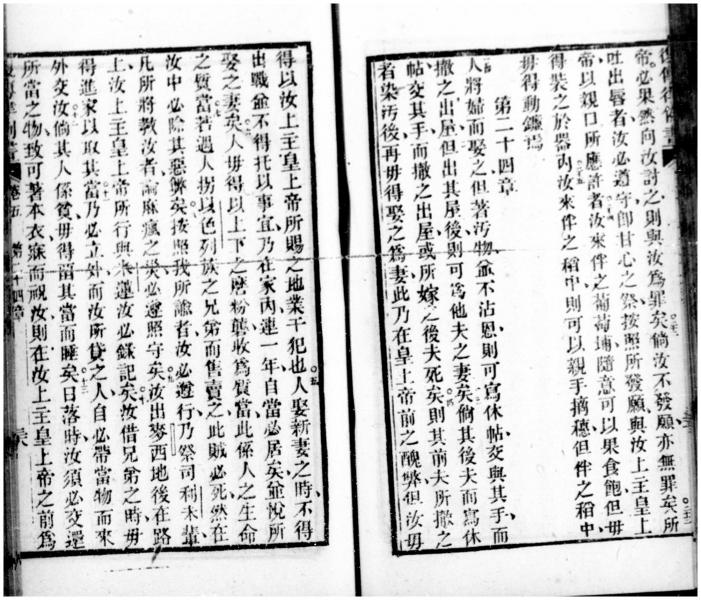 復傳律例書
帝必果然向汝討之則與汝爲罪矣倘汝不發願亦無罪矣所
吐出唇者汝必遵守卽甘心之祭按照所發願與汝上主皇上
帝以親口所應許者汝來伴之葡萄埔隨意可以果食飽但毋
得裝之於器內汝來伴之稻中則可以親手摘穗但伴之稻中
毋得動鐮焉
第二十四章
人將婦而娶之但著污物並不沾恩則可寫休帖交與其手而
撤之出屋但出其屋後則可爲他夫之妻矣倘其後夫而寫休
帖交其手而撤之出屋或所嫁之後夫死矣則其前夫所撤之
者染污後再毋得娶之爲妻此乃在皇上帝前之醜弊但汝毋
得以汝上主皇上帝所賜之地業干犯也人娶新妻之時不得
出戰並不得托以事宜乃在家內連一年自當必居矣並悅所
娶之妻矣人毋得以上下之磨粉龔收爲質當此係人之生命
之質當若遇人拐以色列族之兄弟而售賣之此賊必死然在
汝中必除其惡弊矣按照我所諭者汝必遵行乃祭司利未輩
凡所將教汝者論麻瘋之災必遵照守矣汝出麥西地後在路
上汝上主皇上帝所行與米蓮汝必錄記矣汝借兄弟之時毋
得進家以取其當乃必立外而汝所貸之人自必帶當物而來
外交汝倘其人係貧毋得留其當而睡矣日落時汝須必交還
所當之物致可著本衣寐而祝汝則在汝上主皇上帝之前爲
復傳律例書 卷五 第二十四章